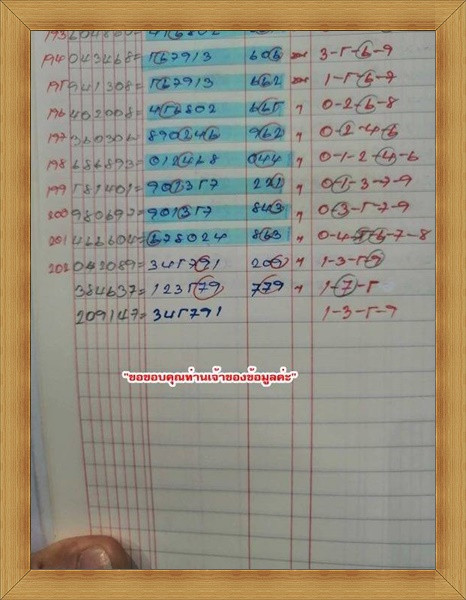 193 604860= 416802
194 043468= 567913 606 3-5-6-9
195 941308= 567913 662 1-5-6-7
196 402008= 456802 665 " 0-2-6-8
197 360306= 890246 962 " 0-2-4-6
198 686893= 012468 044 " 0-1-2-4-6
199 581401= 901357 221 " 0-1-3-7-9
200 980697= 901357 843 " 0-3-5-7-9
201 466604= 678024 863 " 0-4-5-6-7-8
203 043089= 345791 209 " 1-3-5-9
384637= 123579 779 " 1-7-5
209147= 345791 1-3-5-9
"ขอขอบคุณท่านเจ้าของข้อมูลค่ะ"